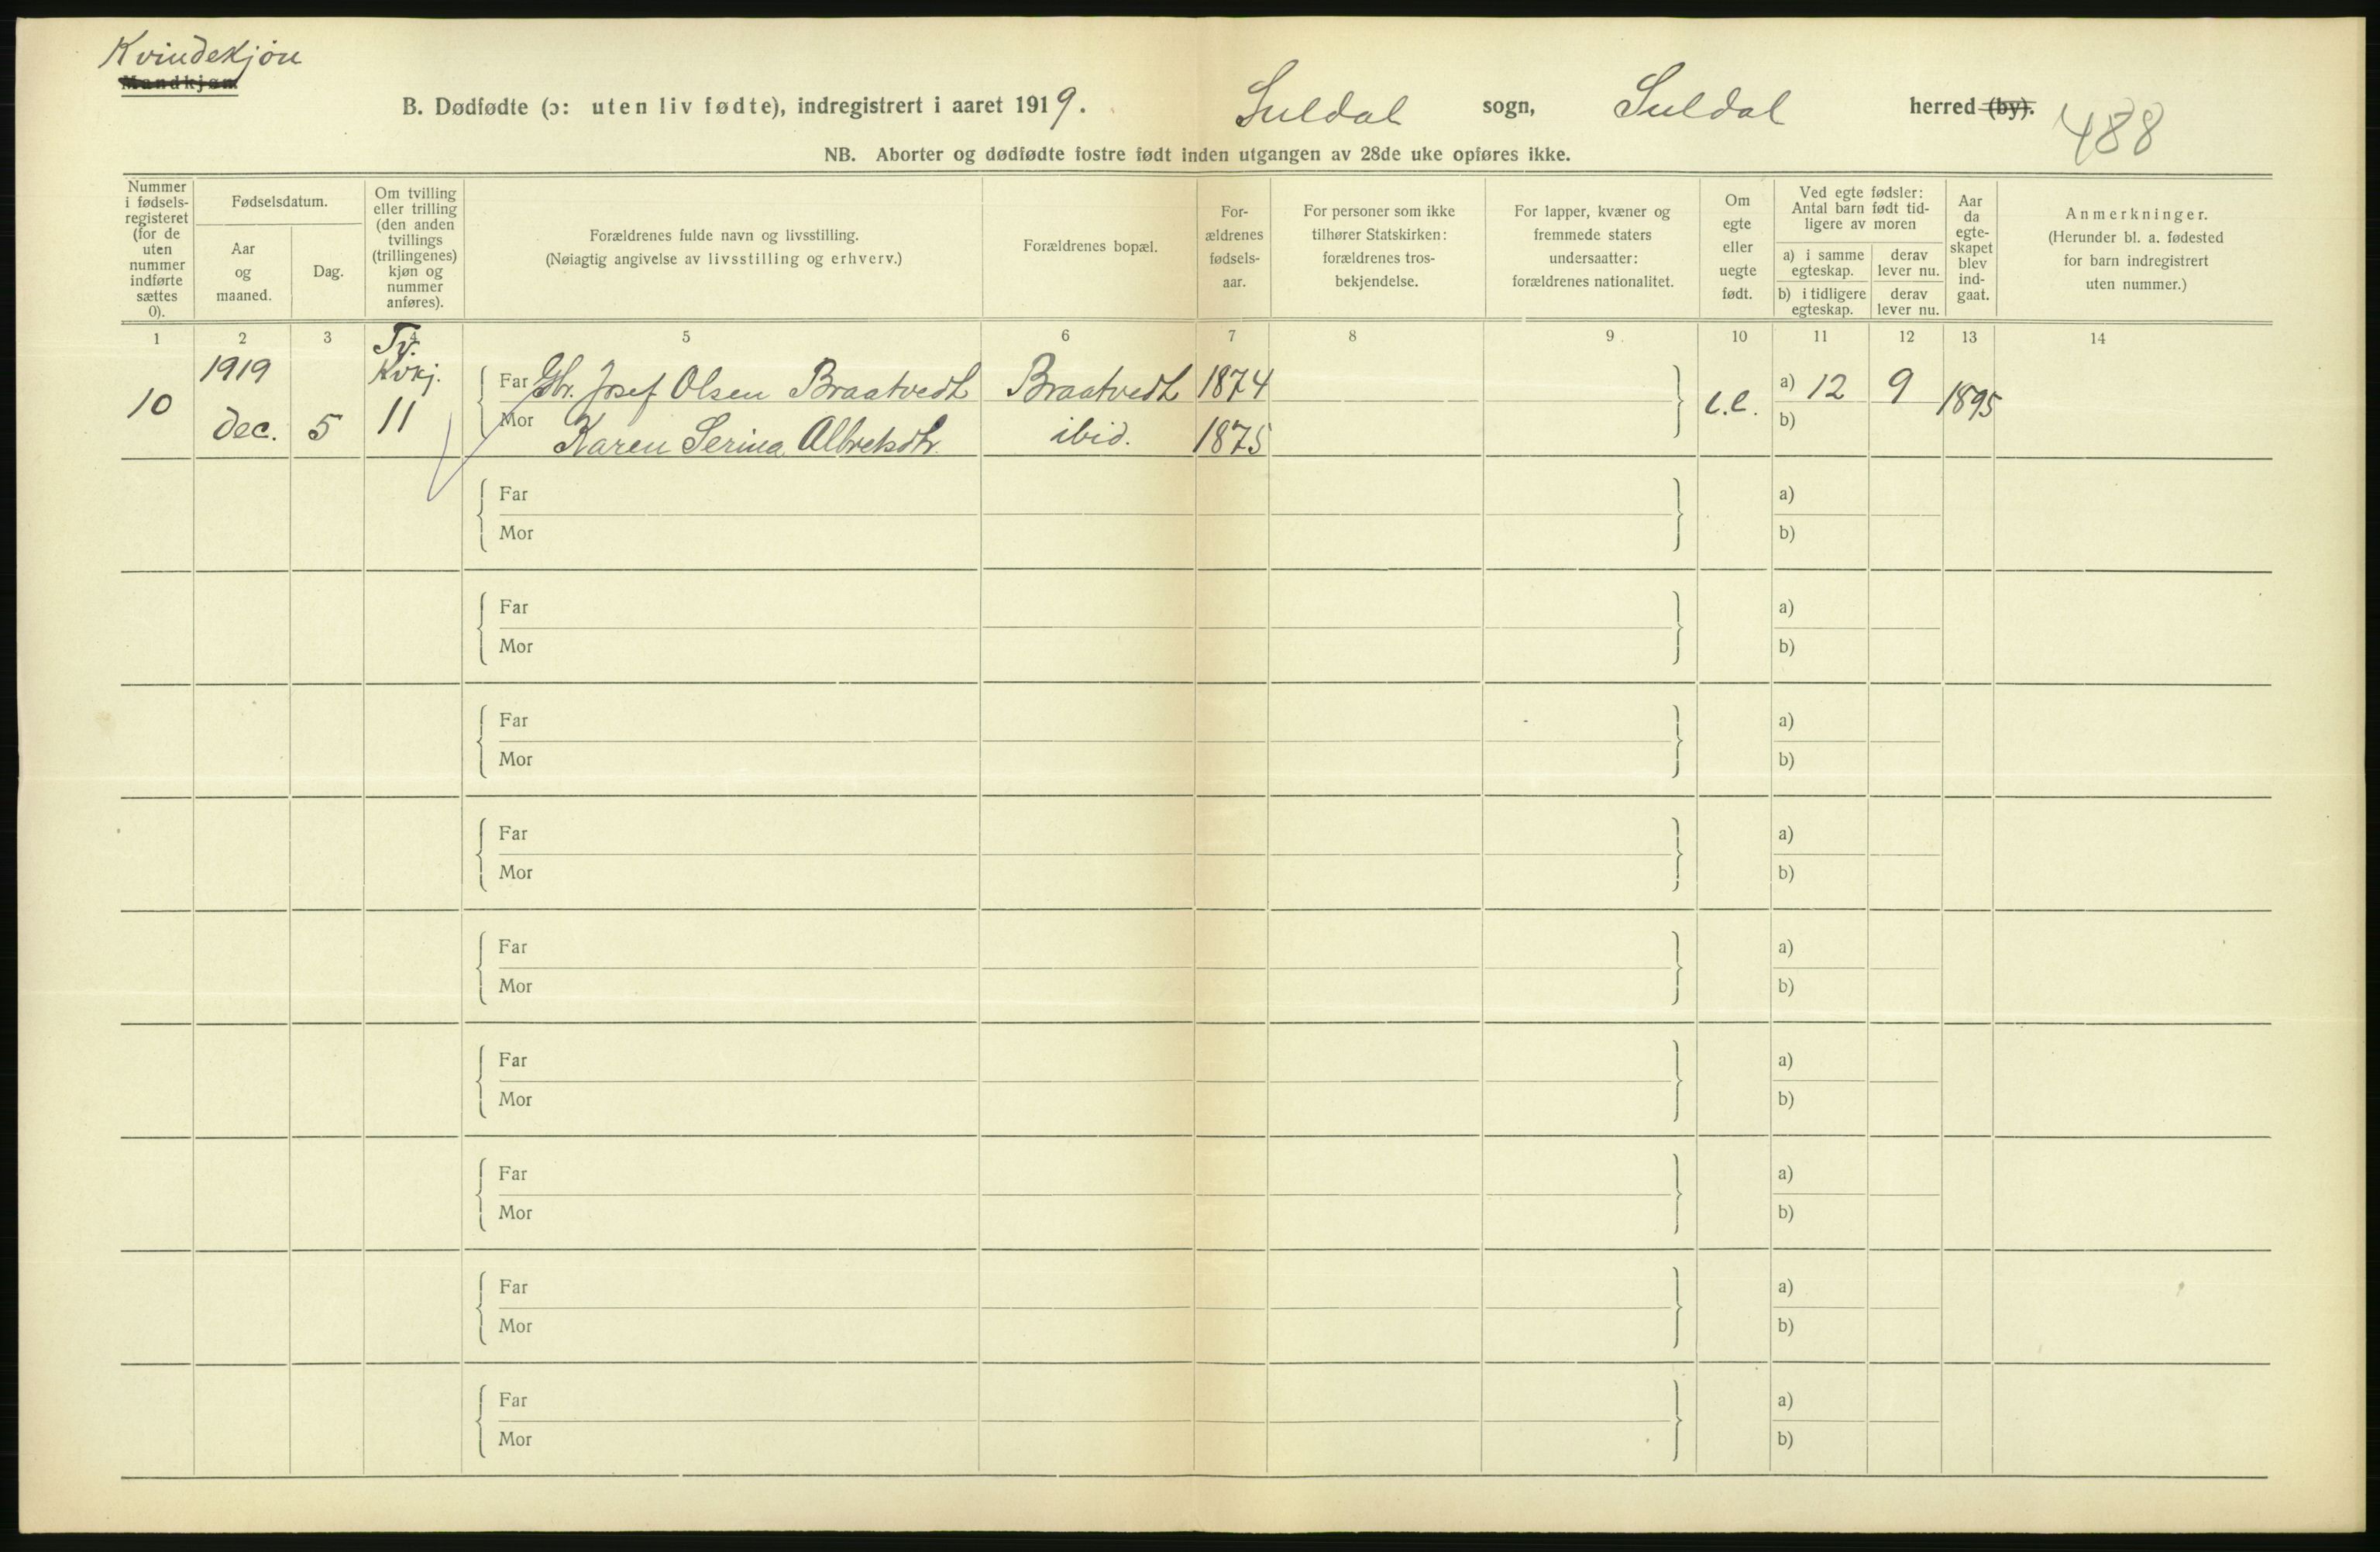 Kvindekjøn
Mandkjøn
B. Dødfødte (ɔ: uten liv fødte), indregistrert i aaret 1919. Suldal sogn, Suldal herred (by).
488
NB. Aborter og dødfødte fostre født inden utgangen av 28de uke opføres ikke.
Nummer i fødsels-registeret (for de uten nummer indførte sættes 0).
Fødselsdatum.
Aar og maaned.
Dag.
Om tvilling eller trilling (den anden tvillings (trillingenes) kjøn og nummer anføres).
Forældrenes fulde navn og livsstilling.
(Nøiagtig angivelse av livsstilling og erhverv.)
Forældrenes bopæl.
For-ældrenes fødsels-aar.
For personer som ikke tilhører Statskirken: forældrenes tros-bekjendelse.
For lapper, kvæner og fremmede staters undersaatter: forældrenes nationalitet.
Om egte eller uegte født.
Ved egte fødsler: Antal barn født tid-ligere av moren
a) i samme egteskap.
derav lever nu.
b) i tidligere egteskap.
derav lever nu.
Aar da egte-skapet blev ind-gaat.
Anmerkninger.
(Herunder bl. a. fødested for barn indregistrert uten nummer.)
1 2 3 4 5 6 7 8 9 10 11 12 13 14
10 1919 Dec. 5 Tv. Kvkj. 11
Far Gbr. Josef Olsen Braatvedt Braatvedt 1874
Mor Karen Serina Albretsdtr. ibid. 1875
e.e. a) 12 9 1895
b)
Far a)
Mor b)
Far a)
Mor b)
Far a)
Mor b)
Far a)
Mor b)
Far a)
Mor b)
Far a)
Mor b)
Far a)
Mor b)
Far a)
Mor b)
Far a)
Mor b)